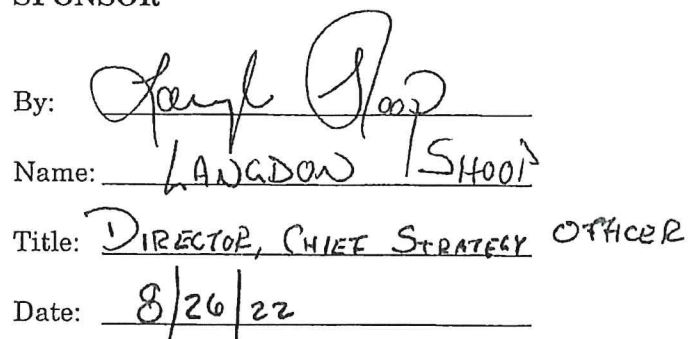 SPONSOR
By:
Name: LANGDON SHOOP
Title: DIRECTOR, CHIEF STRATEGY OFFICER
Date: 8/26/22